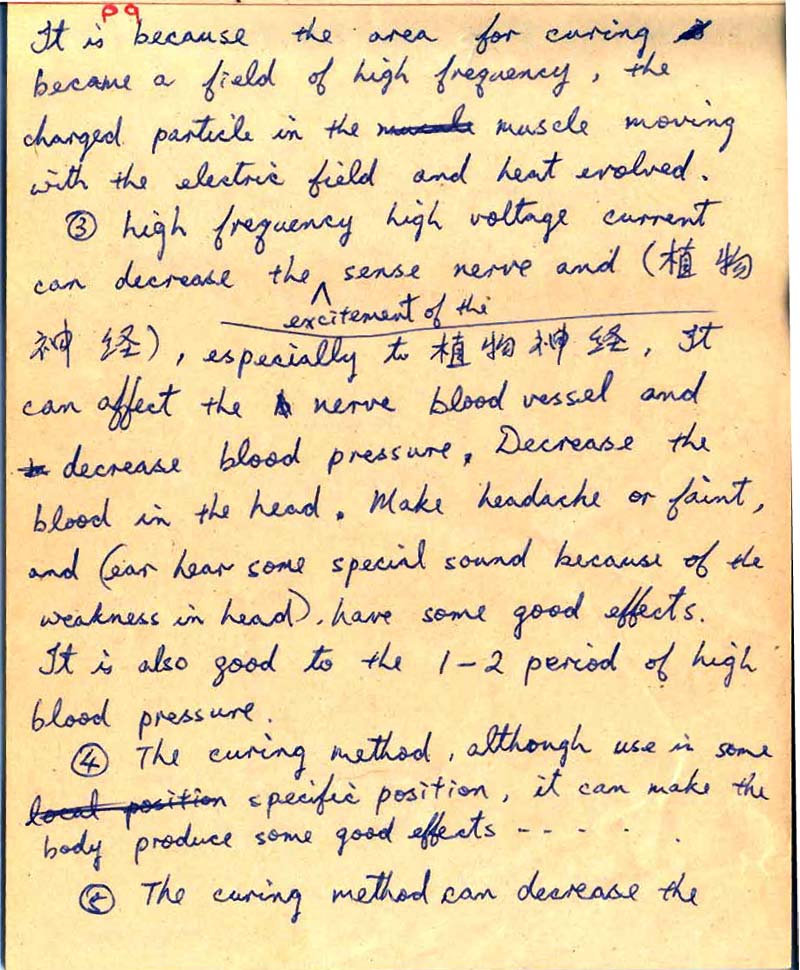 P9
It is because the area for curing
became a field of high frequency, the
charged particle in the muscle muscle moving
with the electric field and heat evolved.
③ high frequency high voltage current
can decrease the sense nerve and (植物
excitement of the
神经), especially to 植物神经, It
can affect the nerve blood vessel and
decrease blood pressure. Decrease the
blood in the head. Make headache or faint,
and (ear hear some special sound because of the
weakness in head), have some good effects.
It is also good to the 1-2 period of high
blood pressure.
④ The curing method, although use in some
local position specific position, it can make the
body produce some good effects -- - . . .
The curing method can decrease the